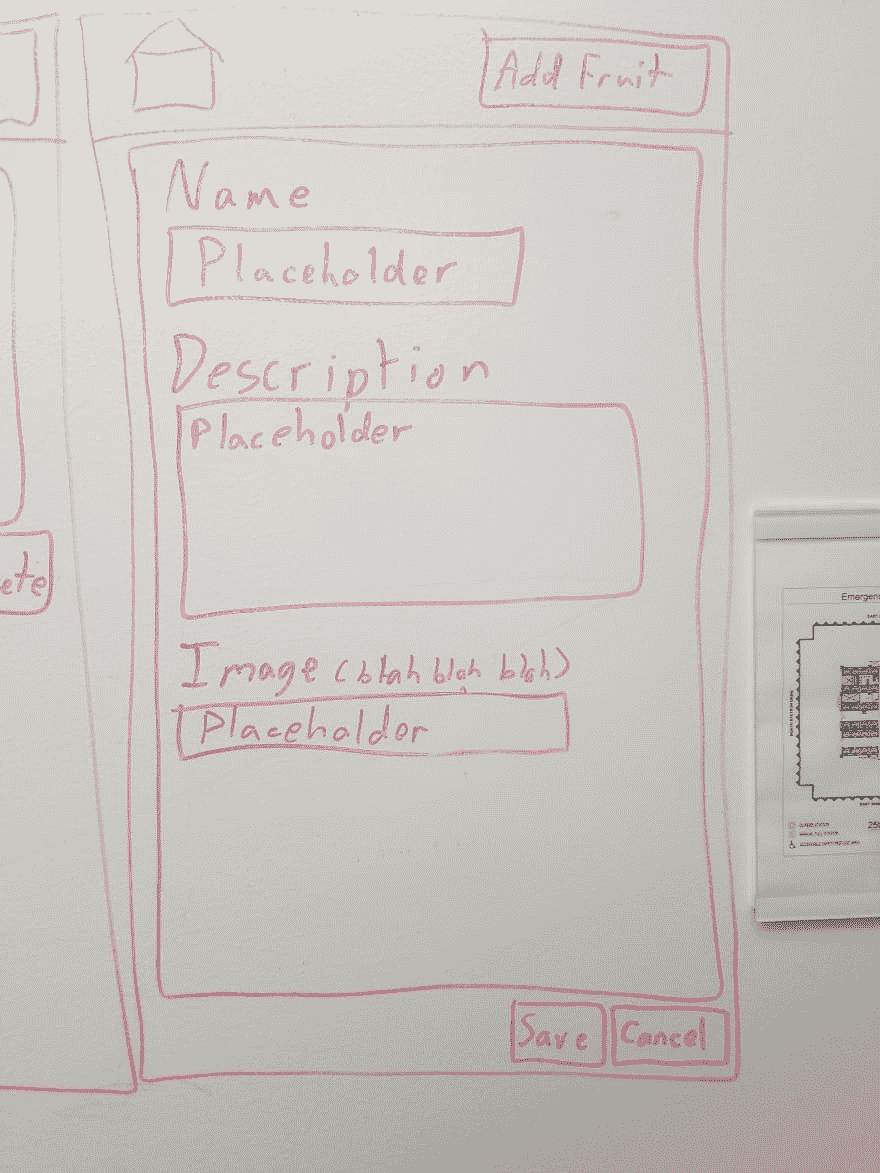 Add Fruit
Name
Placeholder
Description
Placeholder
ete
Image (blah blah blah)
Placeholder
Save
Cancel
Emergenc